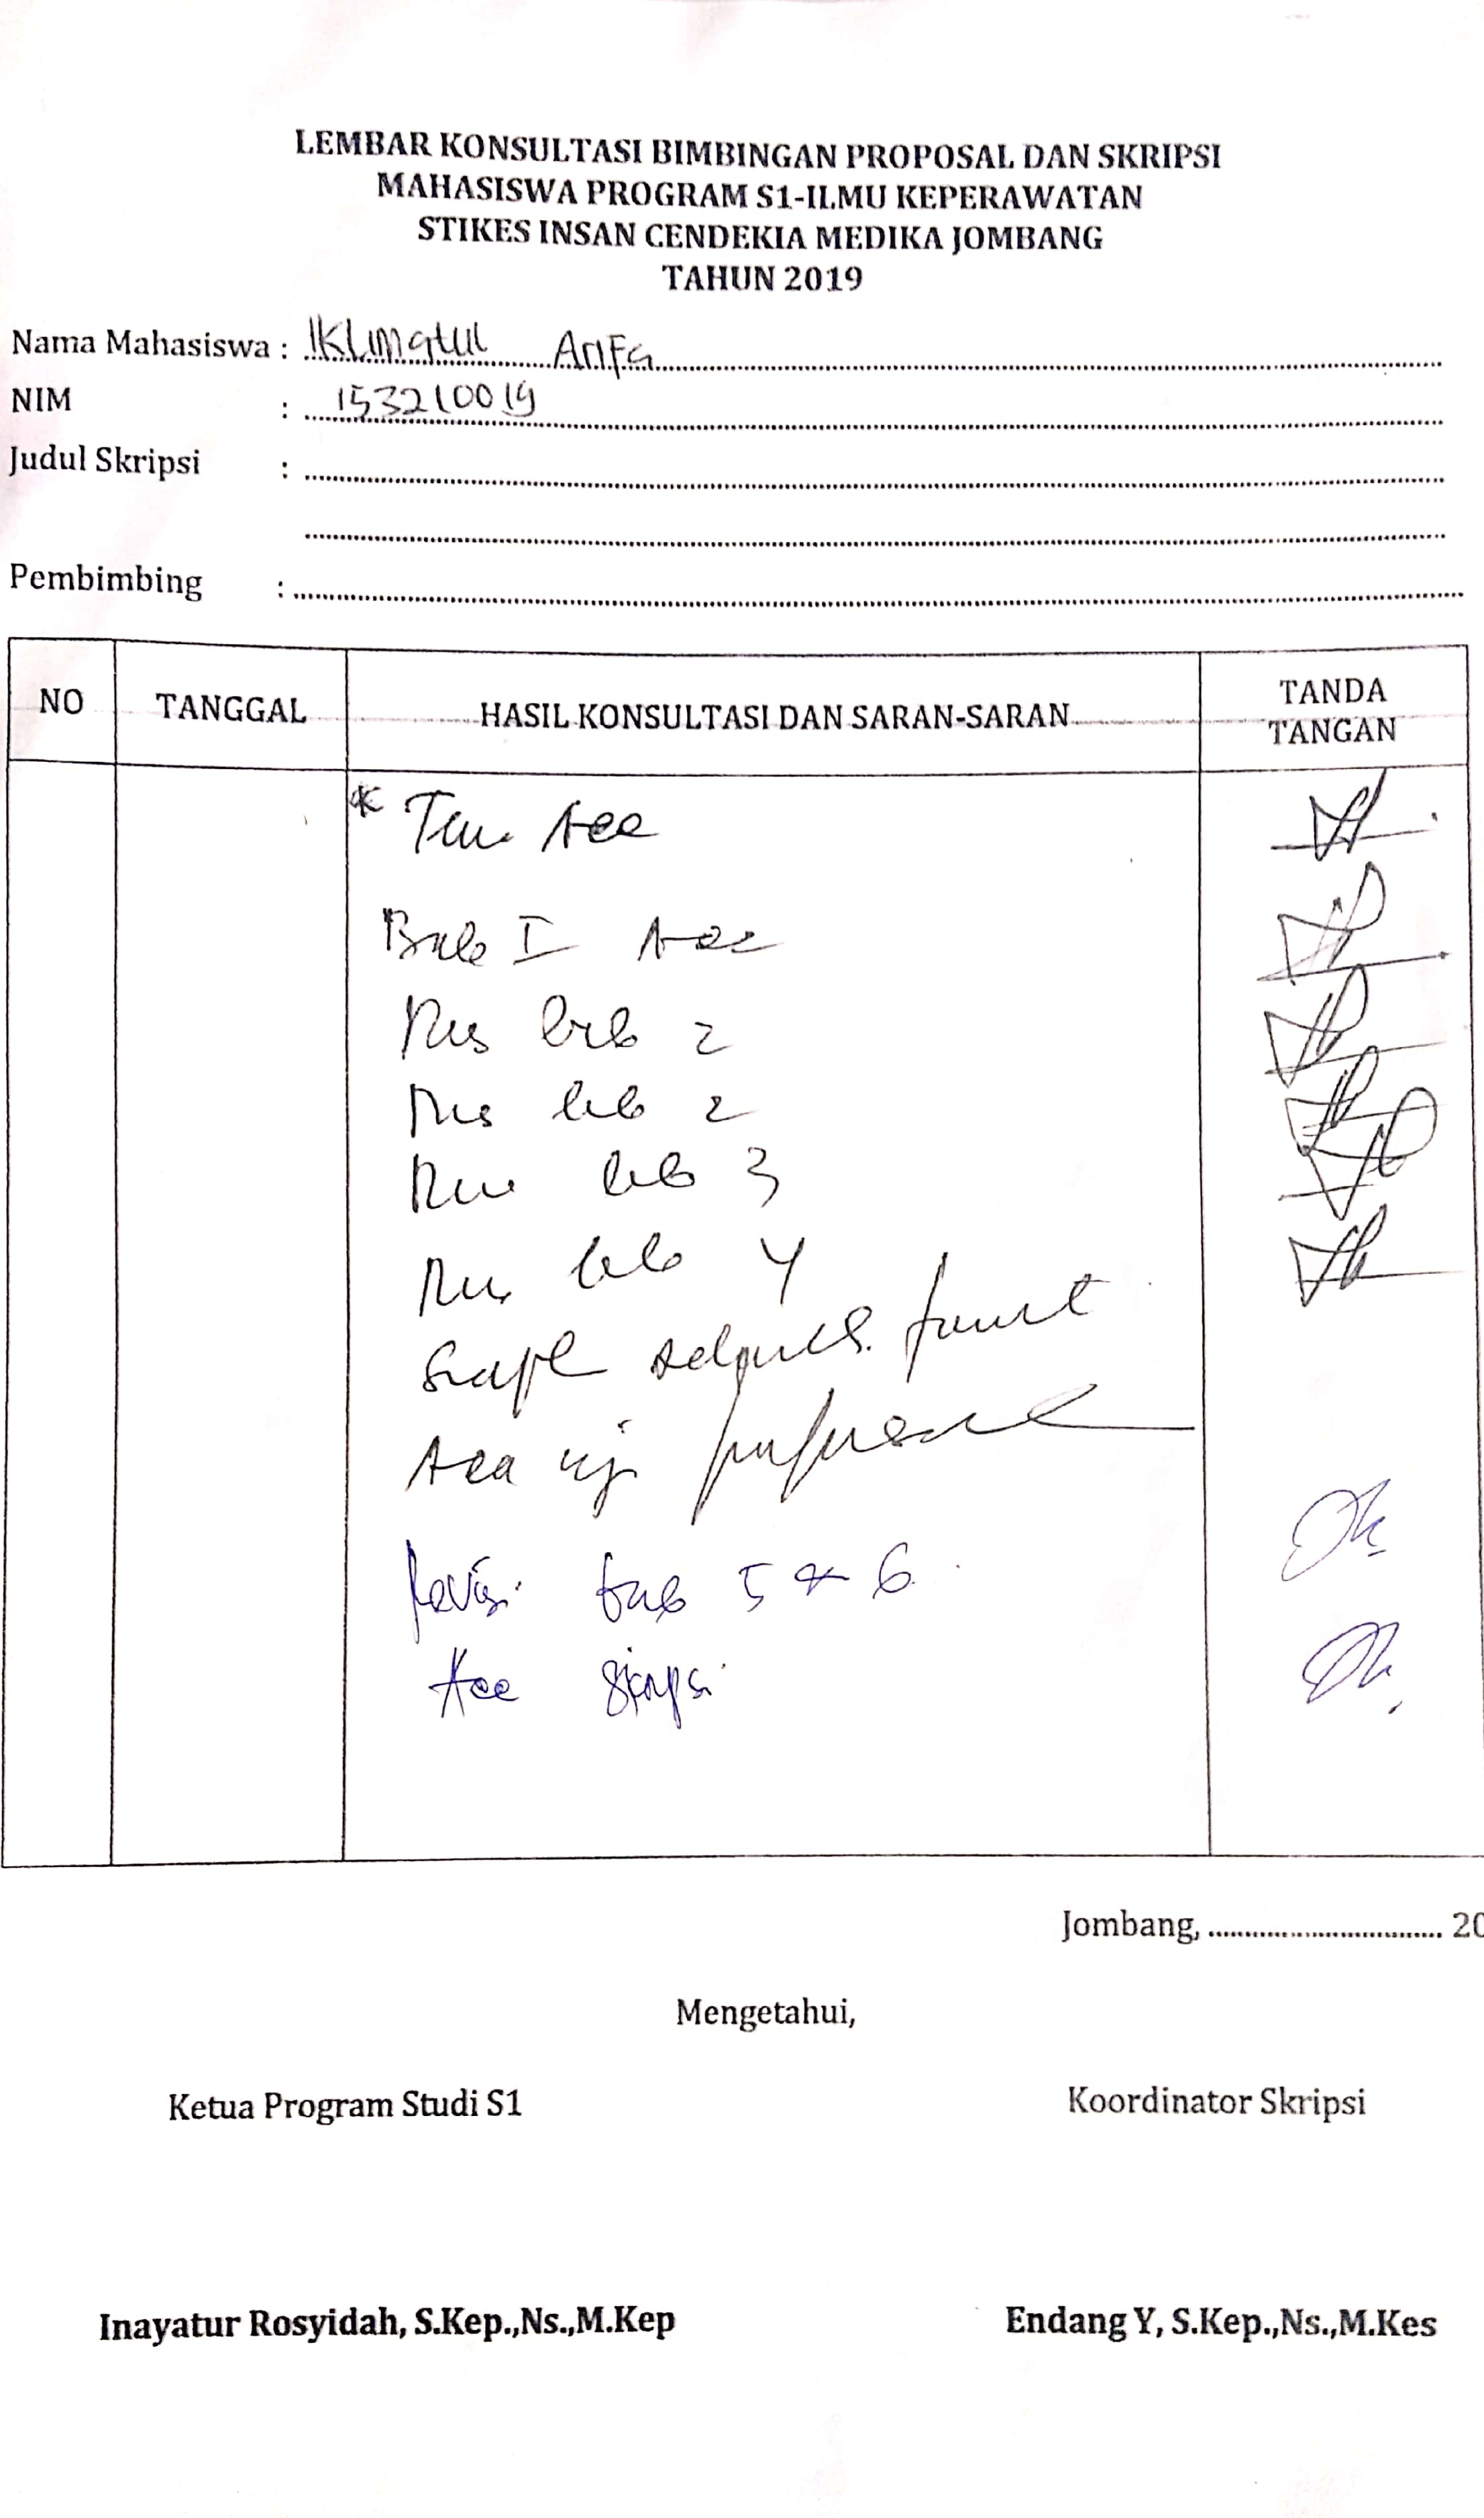 LEMBAR KONSULTASI BIMBINGAN PROPOSAL DAN SKRIPSI
MAHASISWA PROGRAM S1-ILMU KEPERAWATAN
STIKES INSAN CENDEKIA MEDIKA JOMBANG
TAHUN 2019
Nama Mahasiswa : Iklimatul Arifa
NIM : 153210019
Judul Skripsi :
Pembimbing :
NO TANGGAL HASIL KONSULTASI DAN SARAN-SARAN TANDA TANGAN
* Acc
Bab I Acc
bab 2
bab 2
bab 3
bab 4
Acc uji
Revisi bab 5 & 6
Acc Skripsi
Jombang, 20
Mengetahui,
Ketua Program Studi S1 Koordinator Skripsi
Inayatur Rosyidah, S.Kep.,Ns.,M.Kep Endang Y, S.Kep.,Ns.,M.Kes